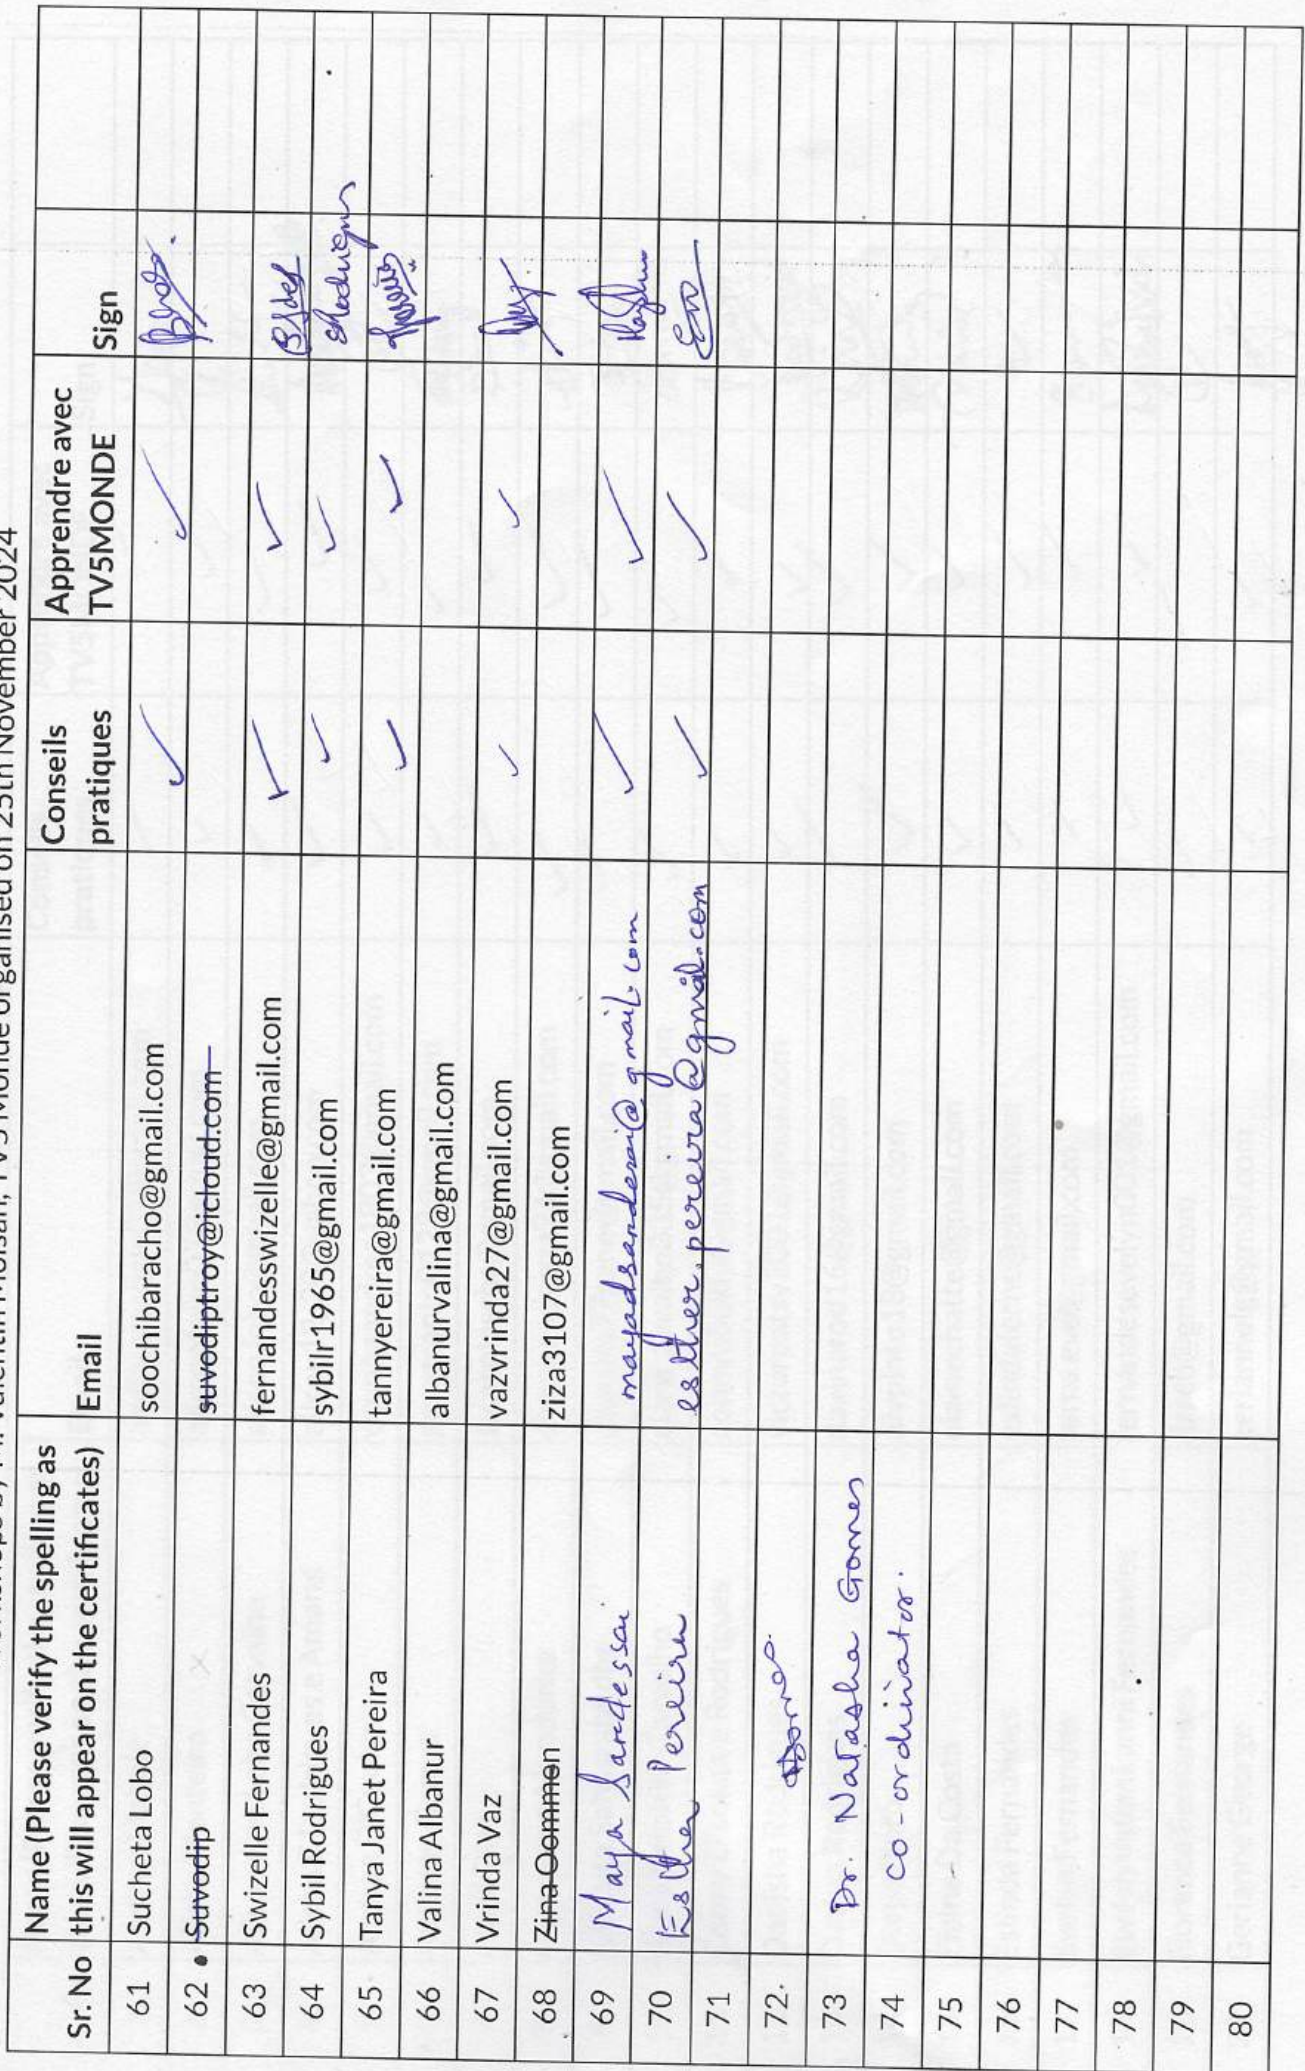 Valentin Moisan, TV5 Monde organised on 25th November 2024
Sr. No Name (Please verify the spelling as this will appear on the certificates) Email Conseils pratiques Apprendre avec TV5MONDE Sign
61 Sucheta Lobo soochibaracho@gmail.com ✓ ✓
62 Suvodip suvodiptroy@icloud.com
63 Swizelle Fernandes fernandesswizelle@gmail.com ✓ ✓
64 Sybil Rodrigues sybilr1965@gmail.com ✓ ✓ SRodrigues
65 Tanya Janet Pereira tannyereira@gmail.com ✓ ✓
66 Valina Albanur albanurvalina@gmail.com
67 Vrinda Vaz vazvrinda27@gmail.com ✓ ✓
68 Zina Oommen ziza3107@gmail.com
69 Maya Sardessai mayadsardesai@gmail.com ✓ ✓
70 Esther Pereira esther.pereira@gmail.com ✓ ✓
71
72.
73 Dr. Natasha Gomes
74 co-ordinator.
75
76
77
78
79
80